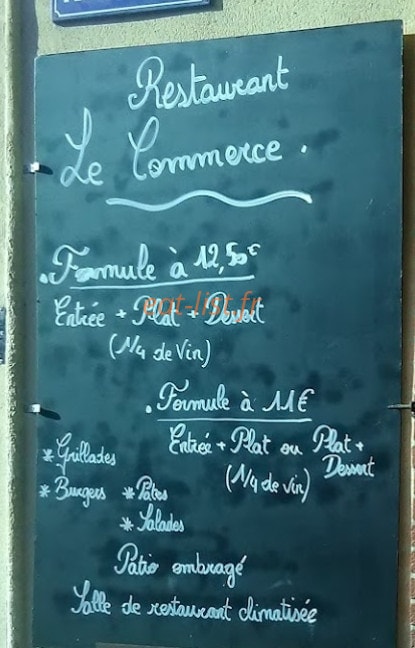 Restaurant
Le Commerce.
• Formule à 12,50€
Entrée + Plat + Dessert
eat-list.fr
(1/4 de Vin)
• Formule à 11€
Entrée + Plat ou Plat +
Dessert
(1/4 de vin)
* Grillades
* Burgers * Pâtes
* Salades
Patio ombragé
Salle de restaurant climatisée